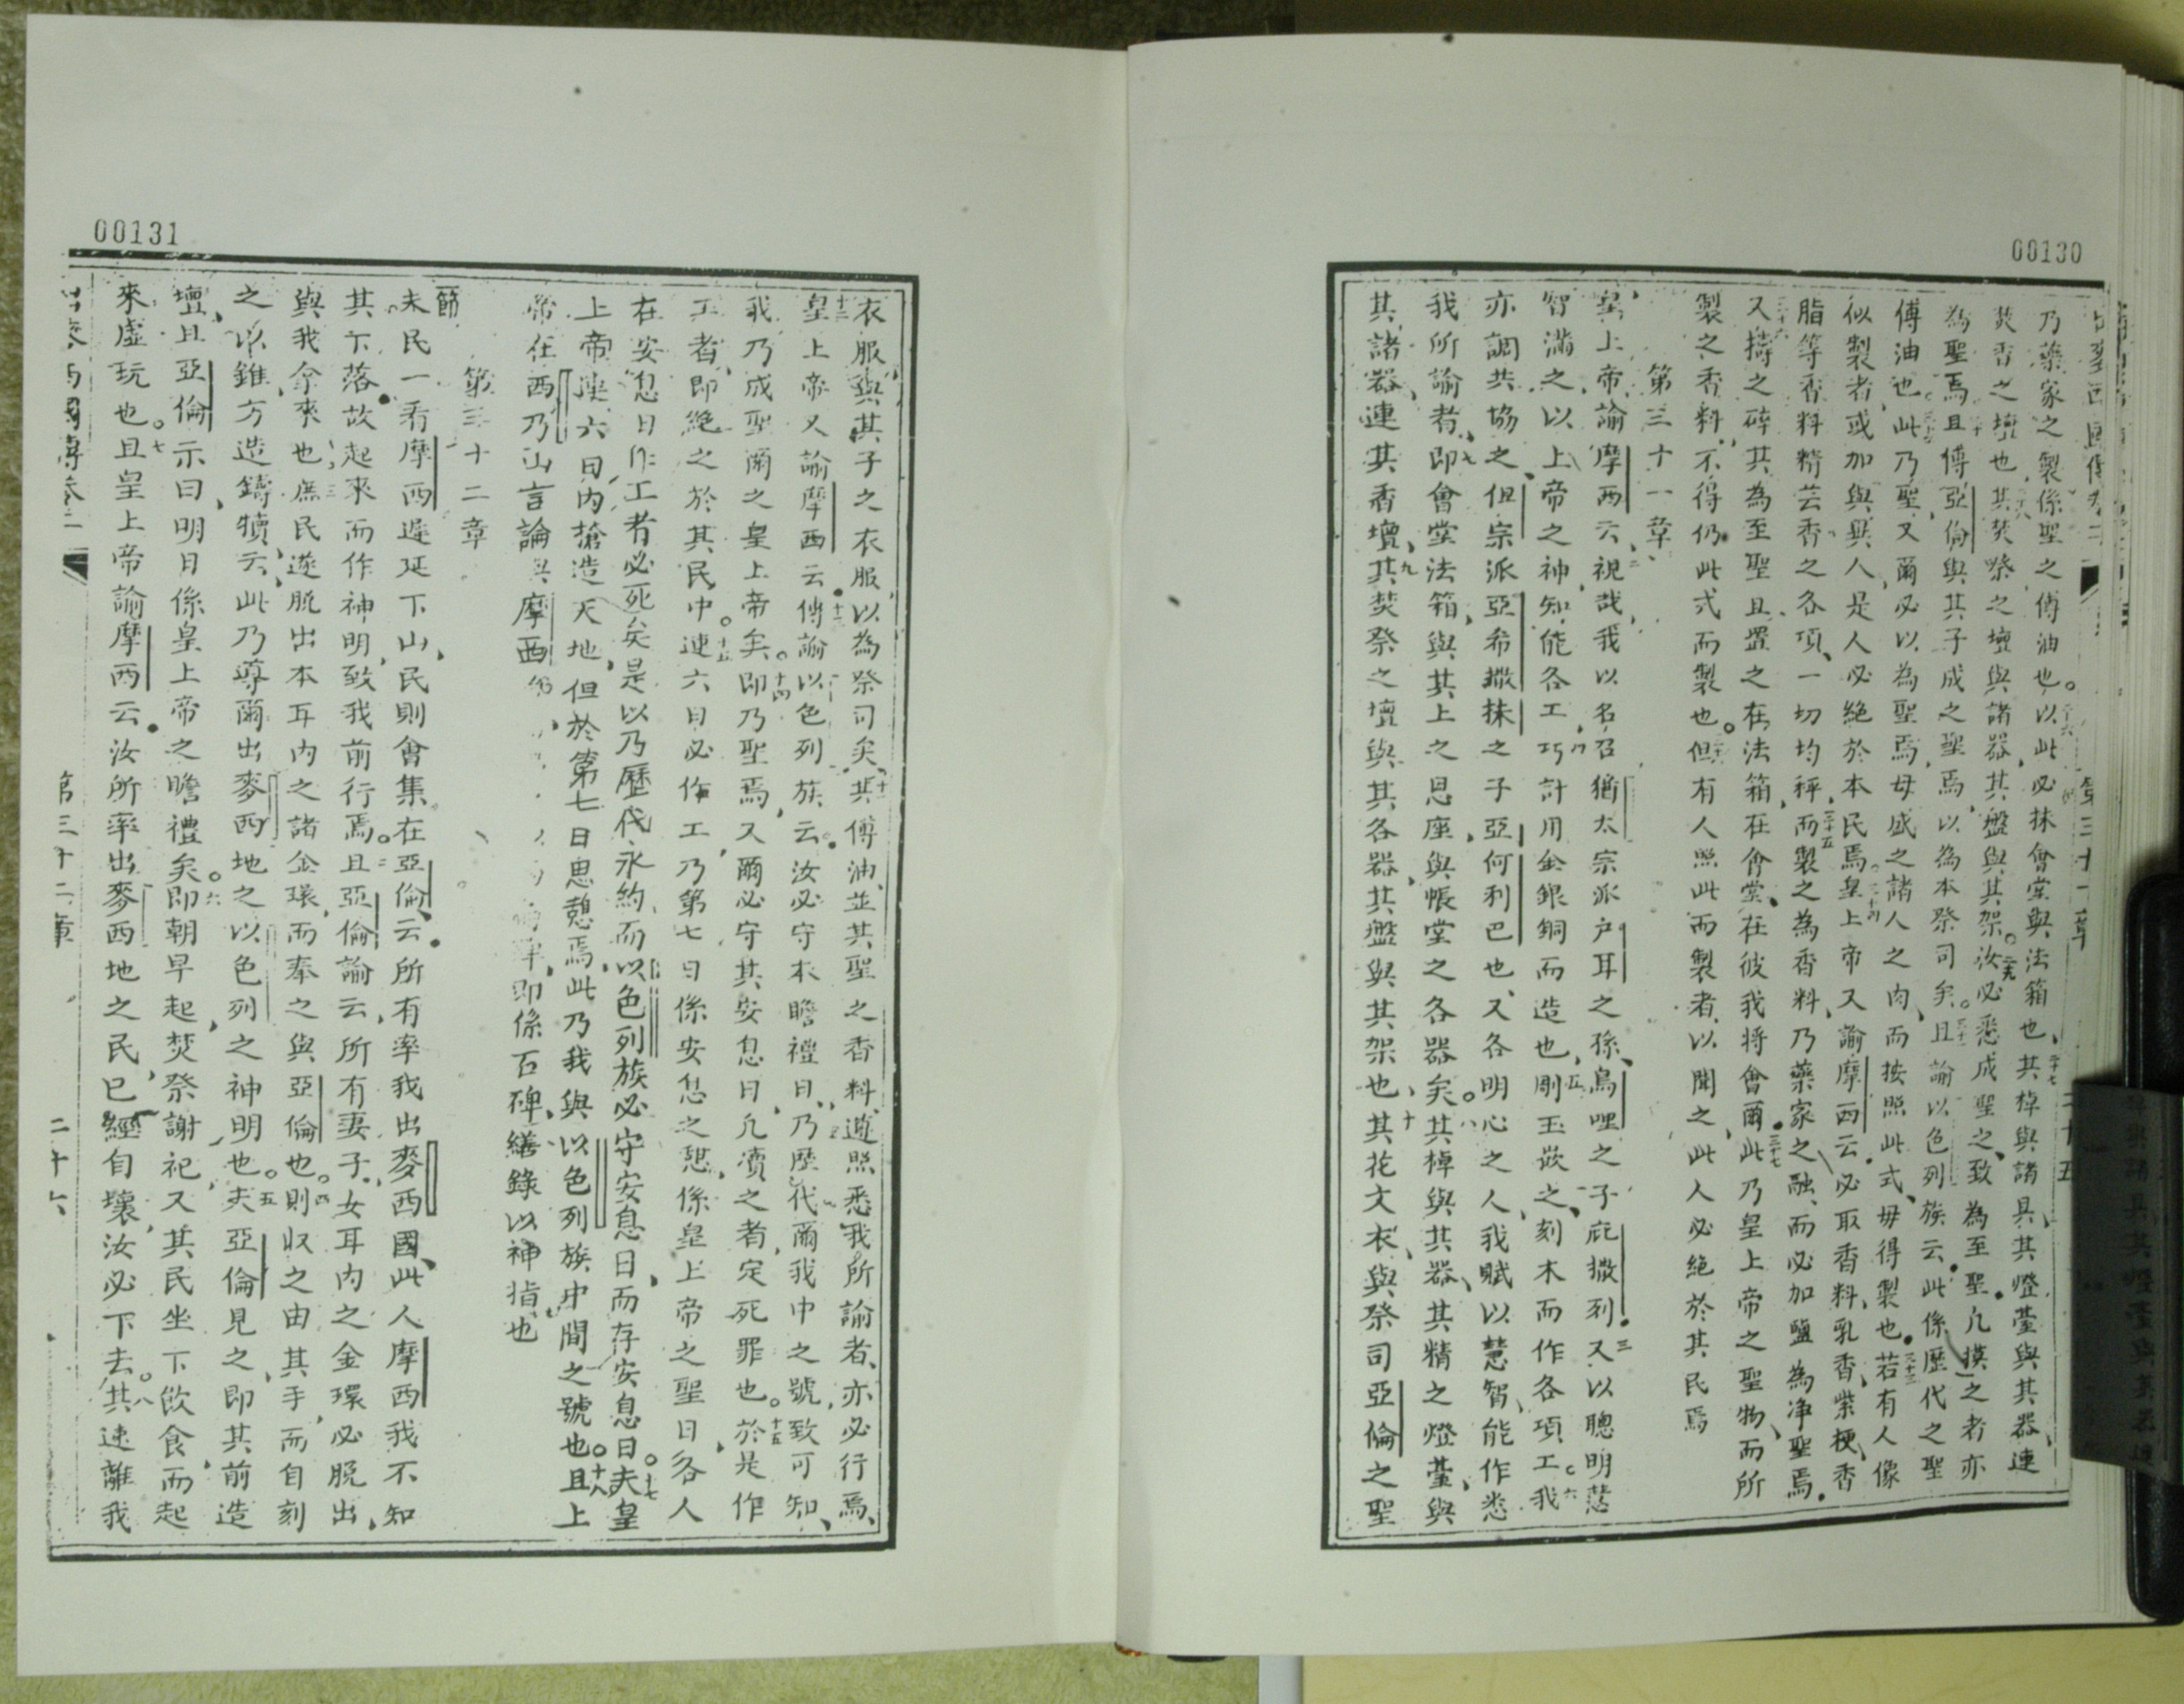 00130
乃藥家之製係聖之傅油也以此必抹會堂與法箱也其棹與諸具其燈臺與其器連
焚香之壇也其焚祭之壇與諸器其盤與其架汝必悉成聖之致為至聖凡摸之者亦
為聖焉且傅亞倫與其子成之聖焉以為本祭司矣且諭以色列族云此係歷代之聖
傅油也此乃聖又爾必以為聖焉毋盛之諸人之肉而按照此式毋得製也若有人像
似製者或加與異人是人必絕於本民焉皇上帝又諭摩西云必取香料乳香柴梗香
脂等香料精芸香之各項一切均秤而製之為香料乃藥家之融而必加鹽為净聖焉
又擣之碎其為至聖且置之在法箱在會堂在彼我將會爾此乃皇上帝之聖物而所
製之香料不得仍此式而製也但有人照此而製者以聞之此人必絕於其民焉
第三十一章
皇上帝諭摩西云視哉我以名召猶太宗派户耳之孫烏哩之子庇撒列又以聰明慧
智滿之以上帝之神知能各工巧計用金銀銅而造也剛玉嵌之刻木而作各項工我
亦調共協之但宗派亞希撒抹之子亞何利巴也又各明心之人我賦以慧智能作悉
我所諭者即會堂法箱與其上之恩座與帳堂之各器矣其棹與其器其精之燈臺與
其諸器連其香壇其焚祭之壇與其各器其盤與其架也其花文衣與祭司亞倫之聖
00131
衣服與其子之衣服以為祭司矣其傅油並其聖之香料遵照悉我所諭者亦必行焉
皇上帝又諭摩西云傳諭以色列族云汝必守本瞻禮日乃歷代爾我中之號致可知
我乃成聖爾之皇上帝矣即乃聖焉又爾必守其安息日凡瀆之者定死罪也於是作
工者即絕之於其民中連六日必作工乃第七日係安息之憩係皇上帝之聖日各人
在安息日作工者必死矣是以乃歷代永約而以色列族必守安息日而存安息日夫皇
上帝連六日內搶造天地但於第七日思憩焉此乃我與以色列族中間之號也且上
帝在西乃山言論與摩西 即係石碑繕錄以神指也
第三十二章
節夫民一看摩西遲延下山民則會集在亞倫云所有率我出麥西國此人摩西我不知
其下落故起來而作神明致我前行焉且亞倫諭云所有妻子女耳內之金環必脫出
與我拿來也庶民遂脫出本耳內之諸金環而奉之與亞倫也則収之由其手而自刻
之以錐方造鑄犢云此乃導爾出麥西地之以色列之神明也夫亞倫見之即其前造
壇且亞倫示曰明日係皇上帝之瞻禮矣即朝早起焚祭謝祀又其民坐下飲食而起
來虛玩也且皇上帝諭摩西云汝所率出麥西地之民已經自壞汝必下去其速離我
出麥西國傳卷二 第三十二章 二十六